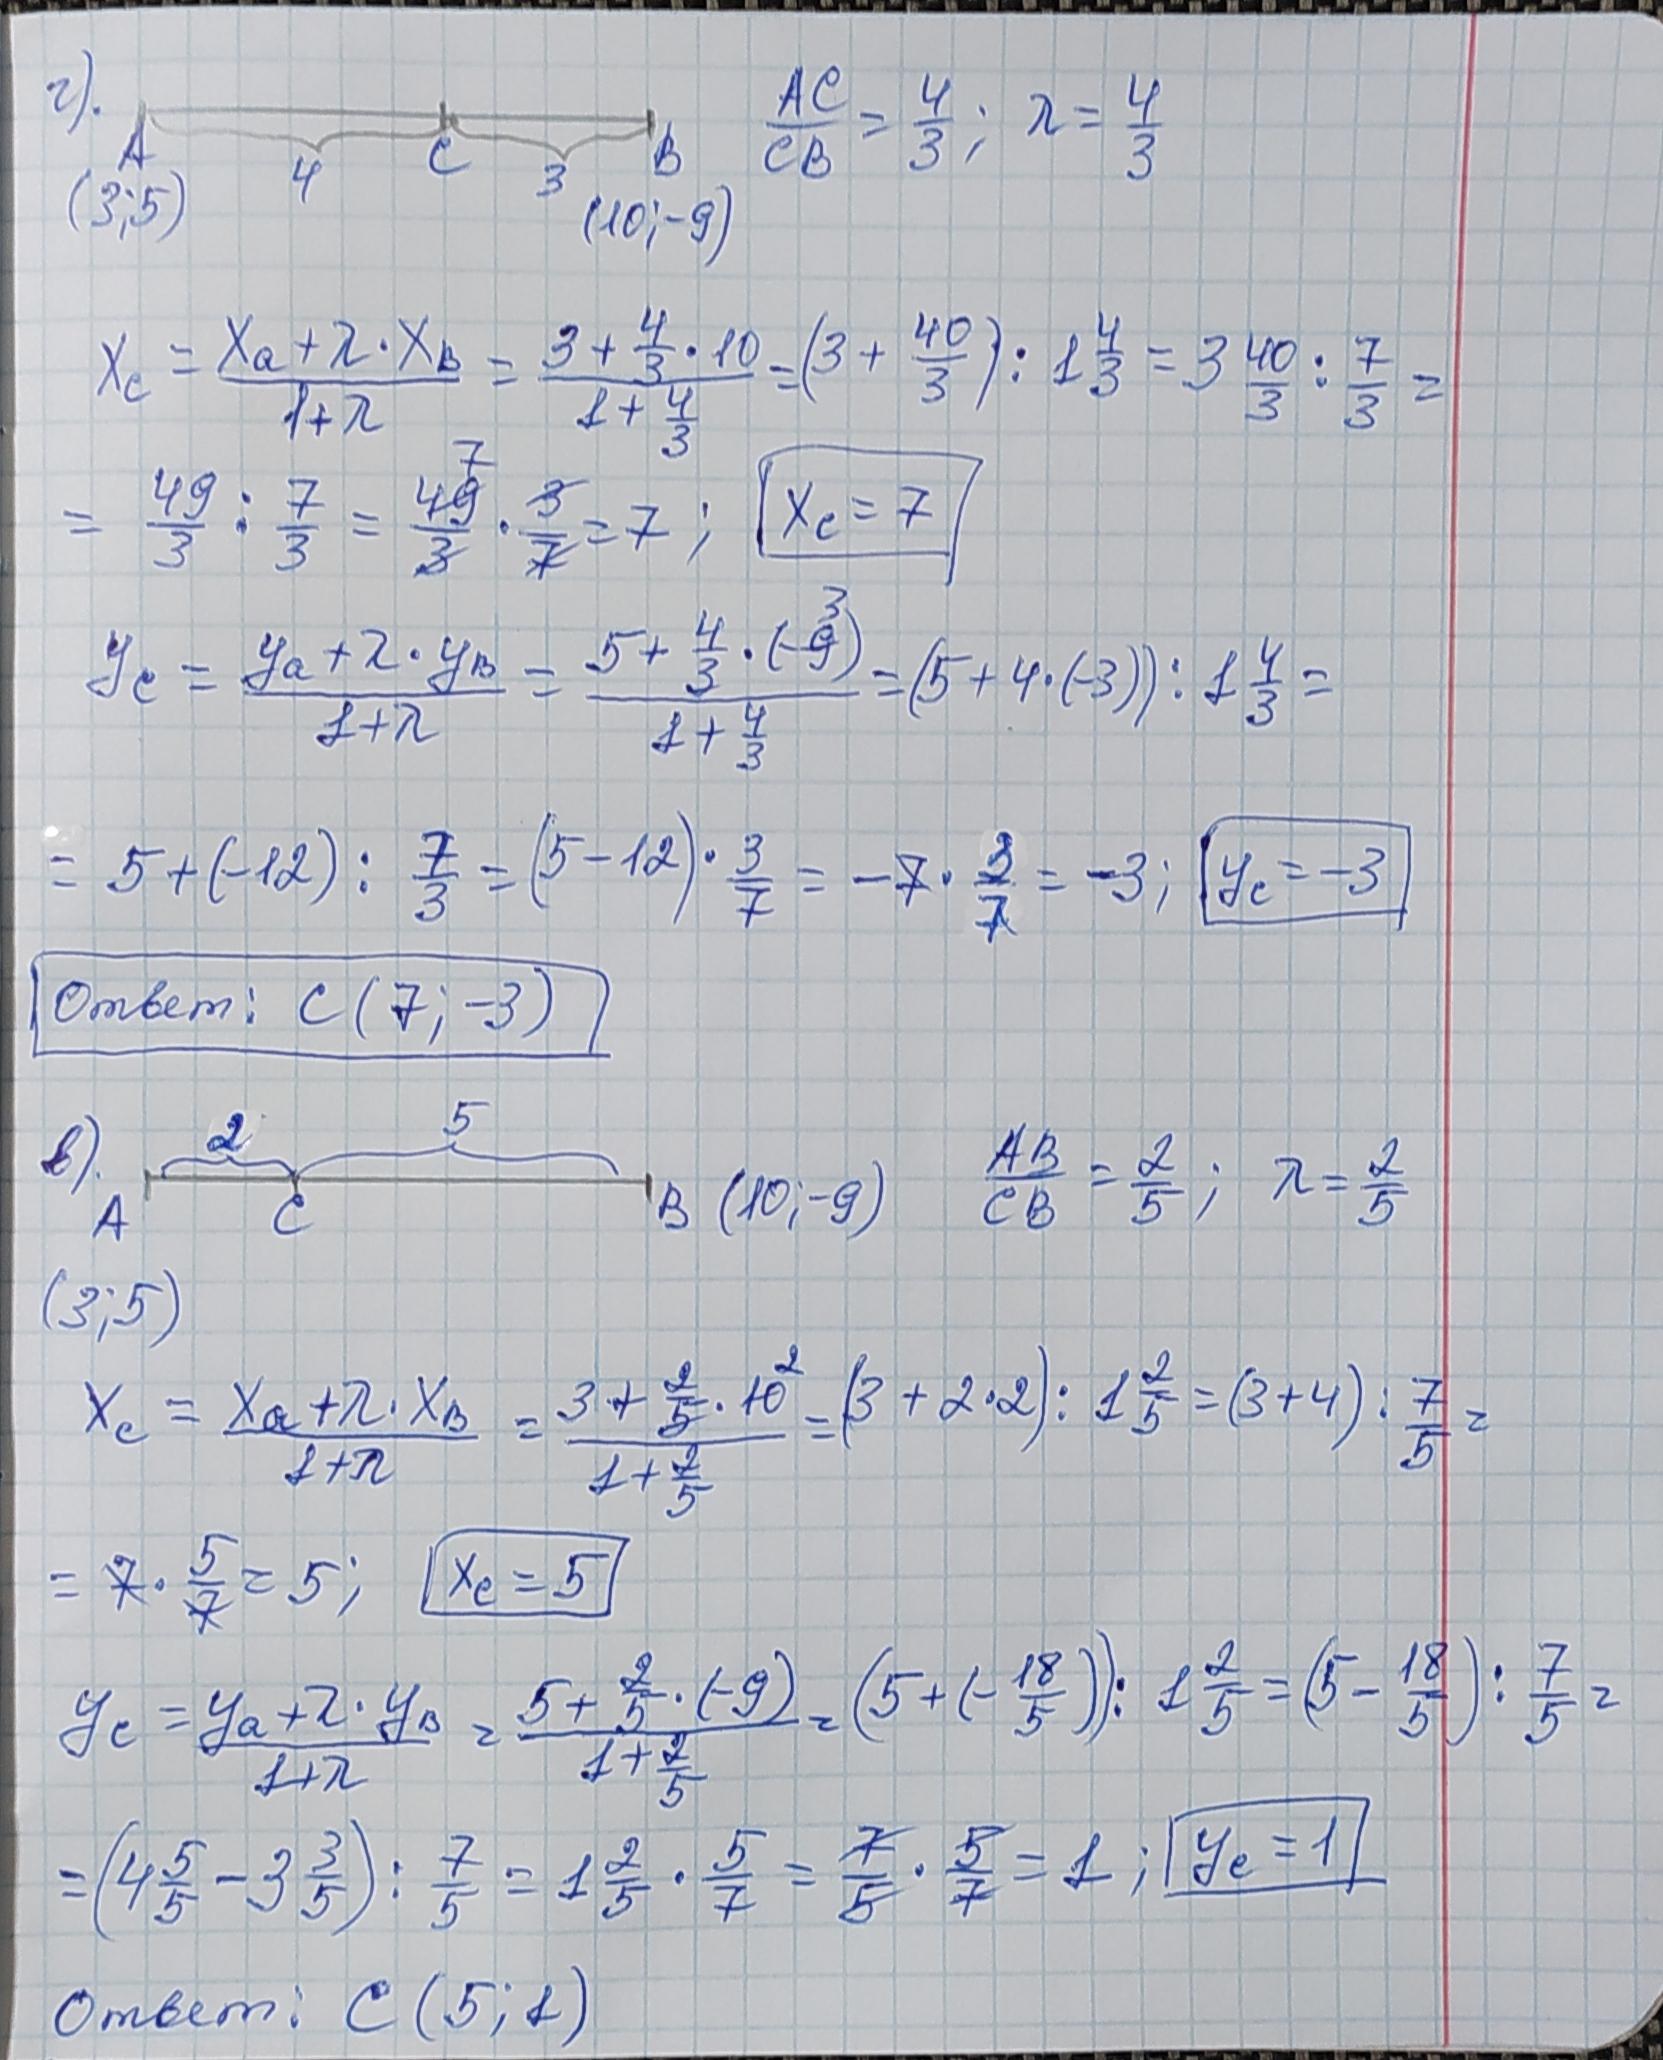 г).
A 4 C 3 B AC/CB = 4/3; λ = 4/3
(3;5) (10;-9)
Xc = (Xa + λ · XB)/(1+λ) = (3 + 4/3 · 10)/(1 + 4/3) = (3 + 40/3) : 1 4/3 = 3 40/3 : 7/3 =
= 49/3 : 7/3 = 49/3 · 3/7 = 7; Xc = 7
7
yc = (ya + λ · yB)/(1+λ) = (5 + 4/3 · (-9))/(1 + 4/3) = (5 + 4·(-3)) : 1 4/3 =
3
= 5 + (-12) : 7/3 = (5 - 12) · 3/7 = -7 · 3/7 = -3; yc = -3
Ответ: C (7; -3)
в). 2 5
A C B (10;-9) AB/CB = 2/5; λ = 2/5
(3;5)
Xc = (Xa + λ · XB)/(1+λ) = (3 + 2/5 · 10)/(1 + 2/5) = (3 + 2·2) : 1 2/5 = (3+4) : 7/5 =
2
= 7 · 5/7 = 5; Xc = 5
yc = (ya + λ · yB)/(1+λ) = (5 + 2/5 · (-9))/(1 + 2/5) = (5 + (-18/5)) : 1 2/5 = (5 - 18/5) : 7/5 =
= (4 5/5 - 3 3/5) : 7/5 = 1 2/5 · 5/7 = 7/5 · 5/7 = 1; yc = 1
Ответ: C (5; 1)